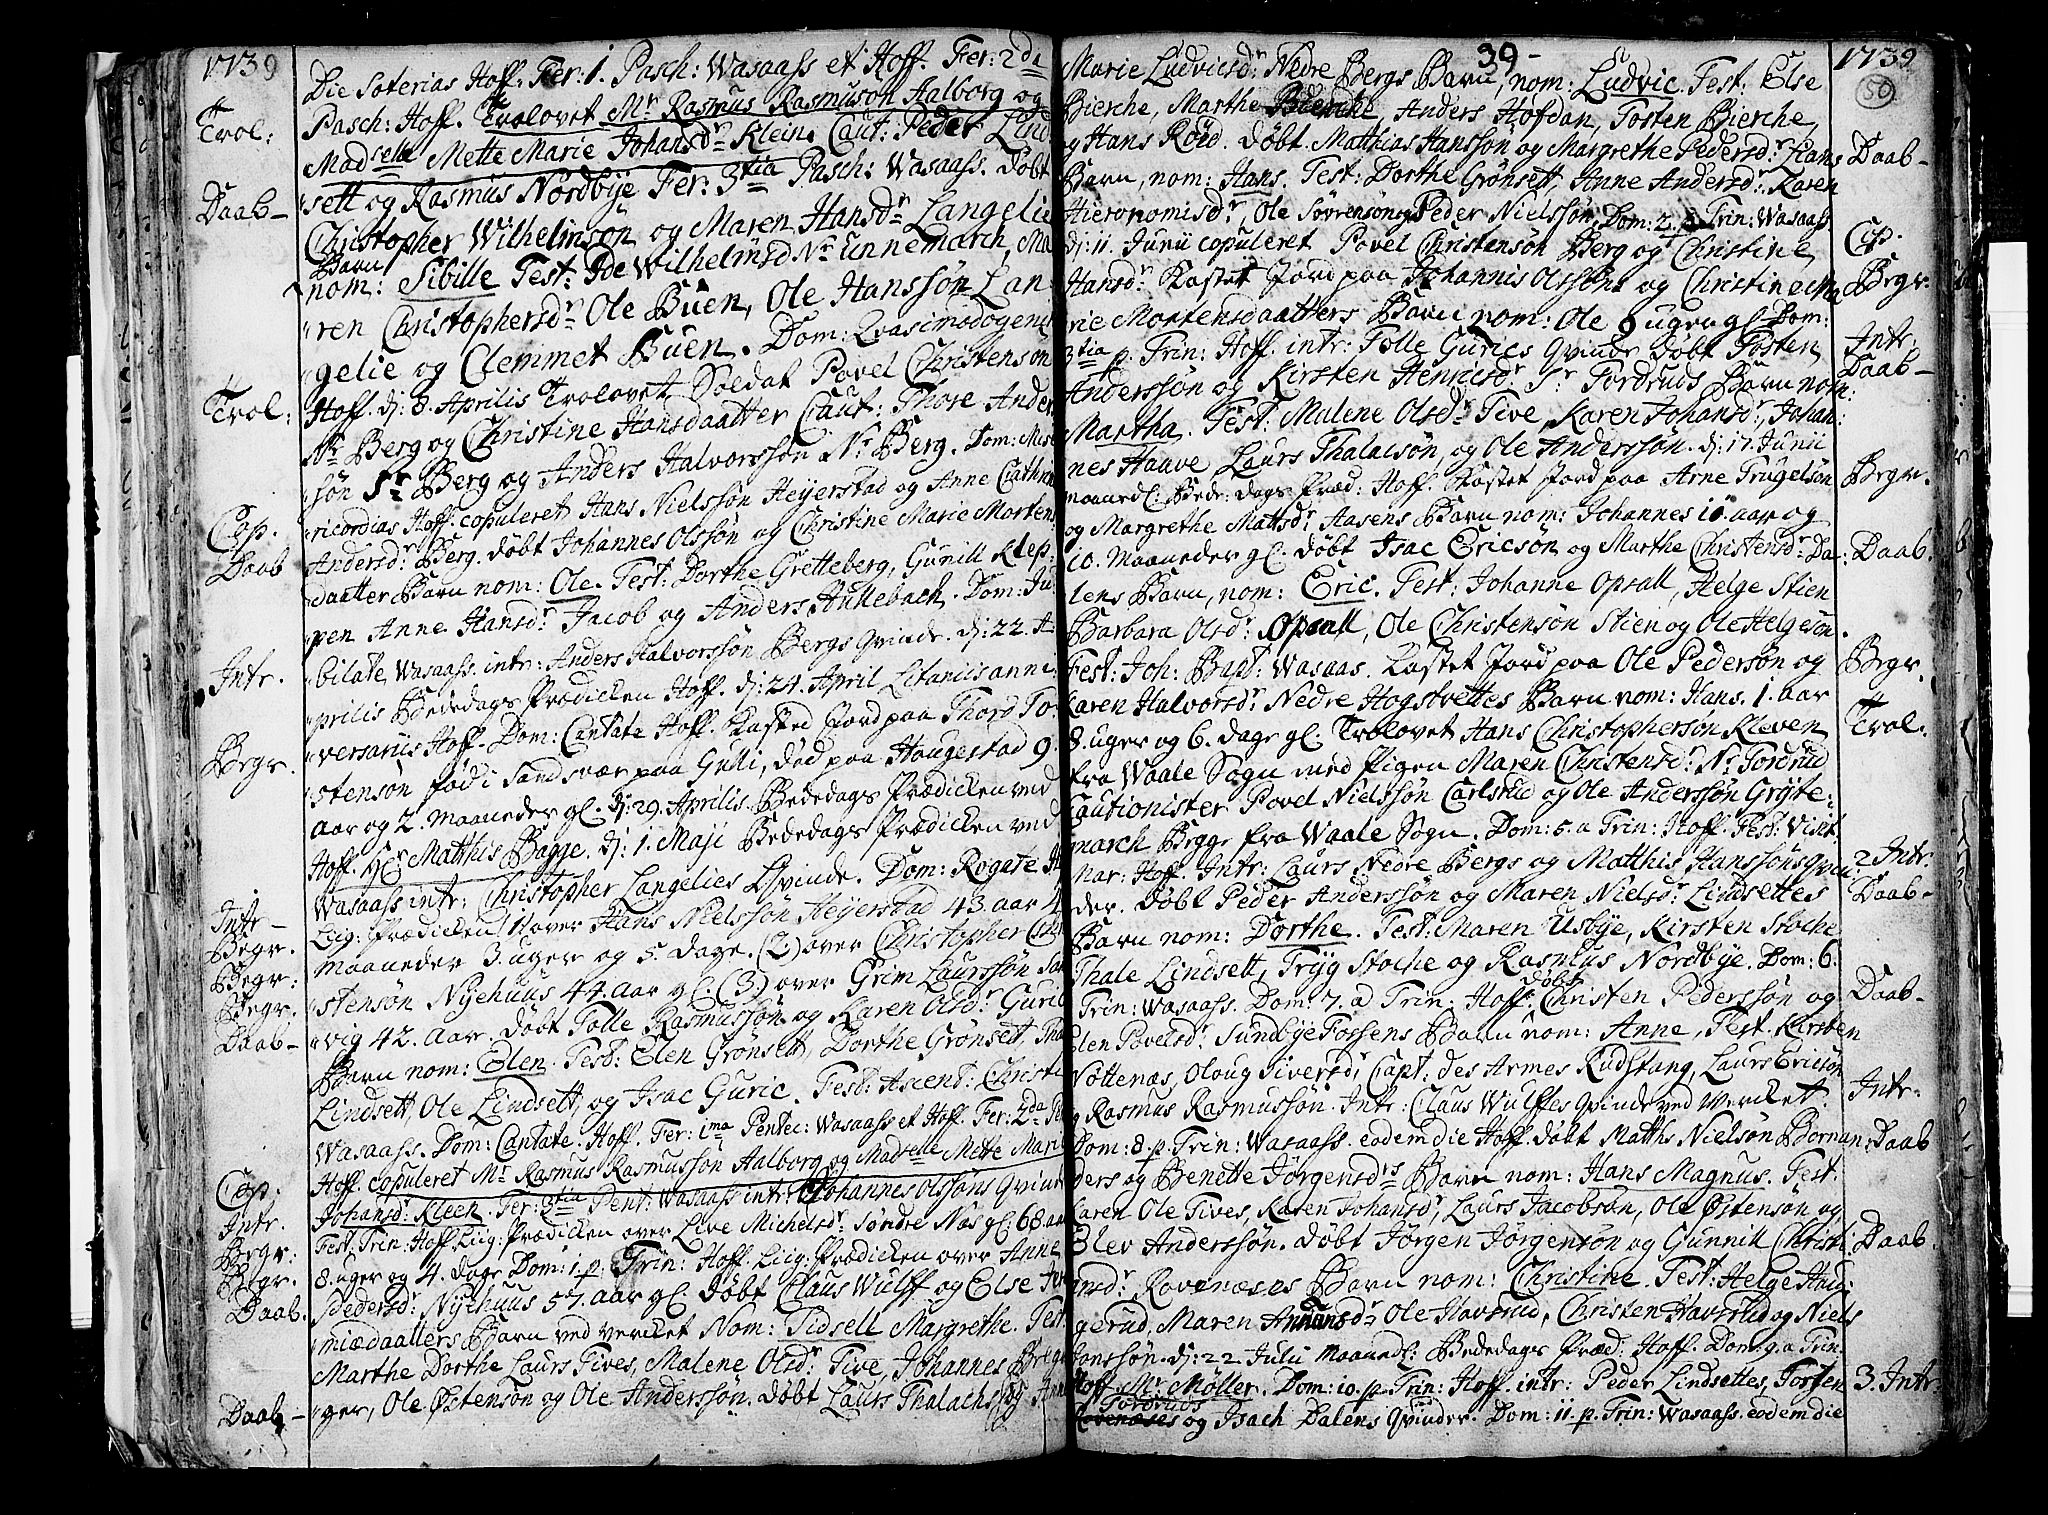 1739
Die Soterias Hoff. Fer: 1. Pasch: Wasaass et Hoff. Fer: 2da
Trol:
Pasch: Hoff. Trolovet Mr Rasmus Rasmuson Aalborg og
Madselle Mette Marie Johansdr Klein. Caut: Peder Lind
Daab-
sett og Rasmus Nordbye Fer: 3tia Pasch: Wasaass. Døbt
Christopher Wilhelmsøn og Maren Hansdr Langelie
Barn
nom: Sibille Test: Ide Wilhelmsd Nr unnemarch, Ma
ren Christophersdr Ole Buen, Ole Hanssøn Lan-
gelie og Clemmet Buen. Dom: Qvasimodogeni
Trol:
Hoff. dj: 8 Aprilis Trolovet Soldat Povel Christensøn
Nr Berg og Christine Hansdaatter Caut: Thore Ander
søn Sr Berg og Anders Halvorssøn Nr Berg. Dom: Mise
Cop.
ricordias Hoff. copuleret Hans Nielssøn Heyerstad og Anne Cathrin
Daab
Andersdr Berg. døbt Johannes Olssøn og Christine Marie Mortens
daatter Barn nom: Ole. Test: Dorthe Gretteberg, Gunill Klep:
pen Anne Hansdr Jacob og Anders Hullebach. Dom: Ju
Intr.
bilate Wasaass. intr: Anders Halvorssøn Bergs Qvinde. dj: 22. A
prilis Bededags Prædicken Hoff. dj: 24. April Litaniis anni
Begr.
versariis Hoff. Dom: Cantate Hoff. Kasted Jord paa Thord To
stensøn fød i Sandsvær paa Gulli, død paa Haugestad 9.
aar og 2. maaneder gl. Dj: 29. Aprilis. Bededags Prædicken ved
Hoff. Hr Matthis Bagge. dj: 1. Maji Bededags Prædicken ved
Intr-
Wasaass intr: Christopher Langelies Qvinde. Dom: Rogate H
Begr.
Liig: Prædicken 1 over Hans Nielssøn Heyerstad 43. aar 4
Begr:
maaneder 3. uger og 5. dage. (2.) over Christopher Chri
Begr.
stensøn Nyehuus 44. aar gl. (3.) over Grim Laurssøn San
Daab-
vig 42. aar. døbt Tolle Rasmussøn og Karen Olsdr Guric
Barn nom: Elen. Test: Elen Grønsett, Dorthe Grønsett, Tha
Lindsett, Ole Lindsett, og Isac Guric. Fest: Ascent: Christi
Wasaass. Dom: Cantate. Hoff. Fer: 1ma Pentec: Wasaass et Hoff. Fer: 2da Pe
Cop.
Hoff. copuleret Mr Rasmus Rasmussøn Aalborg og Madselle Mette Marie
Intr.
Johansdr Kleen. Fer: 3tia Pent: Wasaass intr: Johannes Olssøns Qvind
Begr:
Fest: Trin: Hoff Liig: Prædicken over Live Michelsdr Søndre Nøs gl. 68 aar
Begr.
8. uger og 4. dage Dom: 1. p. Trin: Hoff. Liig: Prædicken over Anne
Daab.
Pedersdr Nyehuus 57. aar gl. døbt Claus Wulff og Else Jere
miædaatters Barn ved verket Nom: Tidsell Margrethe. Test:
Marthe Dorthe Laurs Tives, Malene Olsdr Tive, Johannes
Daab-
ger, Ole Østensøn og Ole Anderssøn. døbt Laurs Thalachsøn
39-
1739
50
Marie Ludvicsdr Nedre Bergs Barn, nom: Ludvic. Test: Else
Bierche, Marthe Bierche, Anders Hofdan, Tosten Bierche,
Daab-
og Hans Röed. døbt. Matthias Hanssøn og Margrethe Pedersdr Hans
Barn, nom: Hans. Test: Dorthe Grönsett, Anne Andersdr Karen
Hieronomisdr, Ole Sørrensøn og Peder Nielssøn. Dom: 2. p. Trin: Wasaass
Cop.
dj: 11. Junii copuleret Povel Christensøn Berg og Christine
Begr:
Hansdr Kastet Jord paa Johannis Olssøns og Christine Ma
rie Mortensdaatters Barn nom: Ole 6 uger gl. Dom:
Intr.
3tia p. Trin: Hoff. intr: Tolle Gurics Qvinde døbt Tosten
Daab-
Anderssøn og Kirsten Henricsdr Sr Tordruds Barn nom:
Martha. Test: Malene Olsdr Tive, Karen Johansdr, Johan:
nes Haave Laurs Thalacsøn, og Ole Anderssøn. dj: 17. Junii
Begr.
maanedl: Bede: dags Præd: Hoff. Kastet Jord paa Arne Trugelsøn
og Margrethe Mattsdr Aasens Barn nom: Johannes 10. aar og
Daab.
10. Maaneder gl. døbt Isac Ericsøn og Marthe Christensdr Da:
lens Barn, nom: Eric. Test: Johanne Opsall, Helge Stien
Barbara Olsdr Opsall, Ole Christensøn Stien og Ole Helgesøn.
Begr.
Fest: Joh: Bapt: Wasaas. Kastet Jord paa Ole Pedersøn og
Karen Halvorsdr Nedre Hogstvettes Barn nom: Hans. 1. aar
Trol:
8. uger og 6. dage gl. Trolovet Hans Christophersøn Kleven
fra Waale Sogn med Pigen Maren Christensdr Nr Tordrud
Cautionister Povel Nielssøn Carlsrud og Ole Anderssøn Gryte-
march Begge fra Waale Sogn. Dom: 5. a Trin: Hoff. Fest: Visit.
2. Intr.
Mar: Hoff. Intr: Laurs Nedre Bergs og Matthis Hanssøns Qvin
Daab-
der. døbt Peder Anderssøn og Maren Nielsdr Lindsettes
Barn nom: Dorthe. Test: Maren Usbye, Kirsten Stoche
Thale Lindsett, Tryg Stoche og Rasmus Nordbye. Dom: 6.
Daab-
Trin: Wasaass. Dom: 7. a Trin: Hoff. døbt Christen Pederssøn og
Elen Povelsdr Sundbye Fossens Barn nom: Anne, Test. Kirsten
Nöttenæs, Oloug Siversdr Capt: des Armes Rudstang, Laurs Ericsøn
Intr.
og Rasmus Rasmussøn. Intr: Claus Wulffes Qvinde ved Verket.
Daab
Dom: 8 p. Trin: Wasaass. eodem die Hoff. døbt Matths Nielsøn Bornan:
ders og Benette Jörgensdrs Barn nom: Hans Magnus. Test:
Karen Ole Tives, Karen Johansdr, Laurs Jacobsøn, Ole Østensøn og
Daab.
Elev Anderssøn. døbt Jørgen Jörgensøn og Gunnill Christi
ansdr Ravenæses Barn nom: Christine. Test: Helge Hau:
gerud, Maren Amunsdr Ole Havsrud, Christen Havsrud og Niels
Jonssøn. dj: 22. Julii Maanedl: Bededags Præd: Hoff. Dom: 9. a Trin:
3. Intr:
Hoff. Mr Møller. Dom: 10. p. Trin: Hoff. intr: Peder Lindsettes, Tosten
Tordruds og Isach Dalens Qvinder. Dom: 11. p. Trin: Wasaass. eodem die